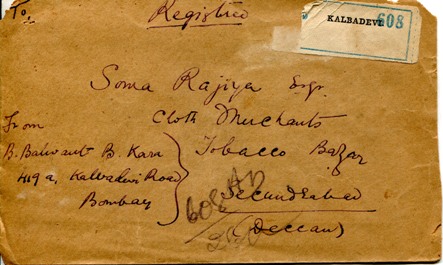 To,
Registered
KALBADEVI 608
Soma Rajiya Esqr.
Cloth Merchants
Tobacco Bazar
Secunderabad
(Deccan)
From
B. Balwant B. Kara
419a, Kalbadevi Road
Bombay
608